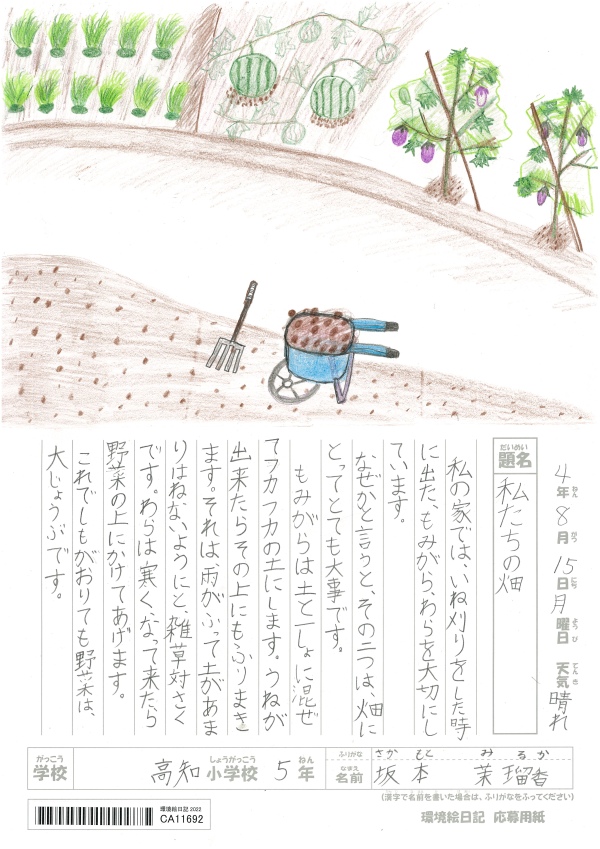 4年ねん 8月がつ 15日にち 月曜日ようび 天気てんき 晴れ
題名だいめい 私たちの畑
私の家では、いね刈りをした時
に出た、もみがら、わらを大切にし
ています。
なぜかと言うと、その二つは、畑に
とってとても大事です。
もみがらは土と一しょに混ぜ
てフカフカの土にします。うねが
出来たらその上にもふりまき
ます。それは、雨がふって土があま
りはねないようにと、雑草対さく
です。わらは寒くなって来たら
野菜の上にかけてあげます。
これでしもがおりても野菜は、
大じょうぶです。
がっこう 学校 高知 しょうがっこう 小学校 5 ねん 年
ふりがな さかもと みるか
なまえ 名前 坂本 茉瑠香
(漢字で名前を書いた場合は、ふりがなをふってください)
環境絵日記 応募用紙
環境絵日記 2022
CA11692